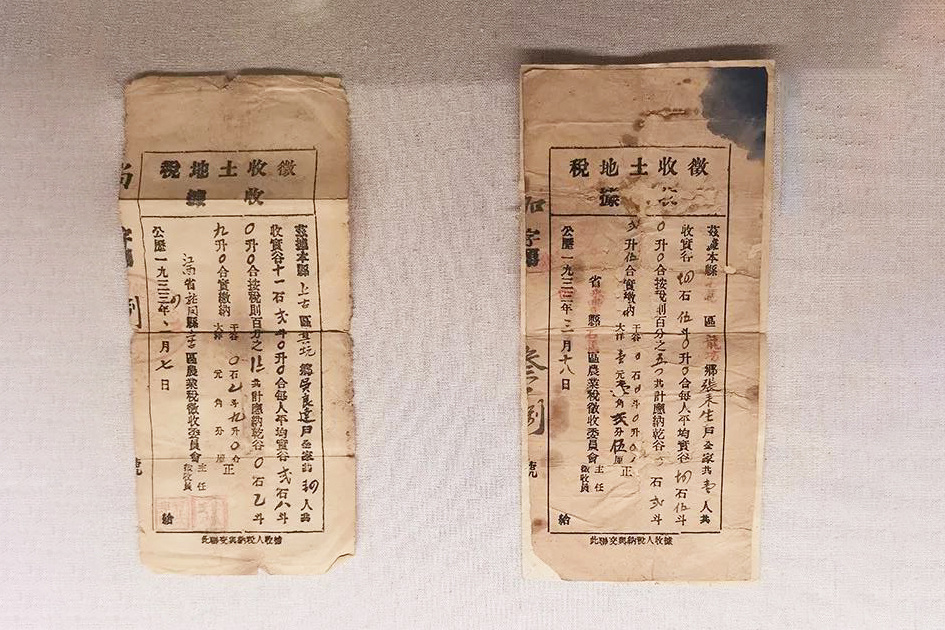 徵收土地稅
收據
茲據本縣上古區其坑鄉吳良達戶全家共人共
收實谷十一石弍斗0升0合每人平均實谷弍石八斗
0升0合按稅則百分之共計應納乾谷0石乙斗
九升0合實繳納
干谷0石乙斗九升0合正
大洋 元 角 分 厘
江西省縣古區農業稅徵收委員會
主任
徵收員
公歷一九三三年 月七日 給
此聯交與納稅人收據
字第
號
徵收土地稅
收據
茲據本縣 區 鄉張來生戶全家共壹人共
收實谷四石伍斗0升0合每人平均實谷四石伍斗
0升0合按稅則百分之五共計應納乾谷 石弍斗
弍升伍合實繳納
干谷0石0斗0升0合正
大洋壹元壹角弍分伍厘
省 縣 區農業稅徵收委員會
主任
徵收員
公歷一九三三年三月十八日 給
此聯交與納稅人收據
加字第
叁
號